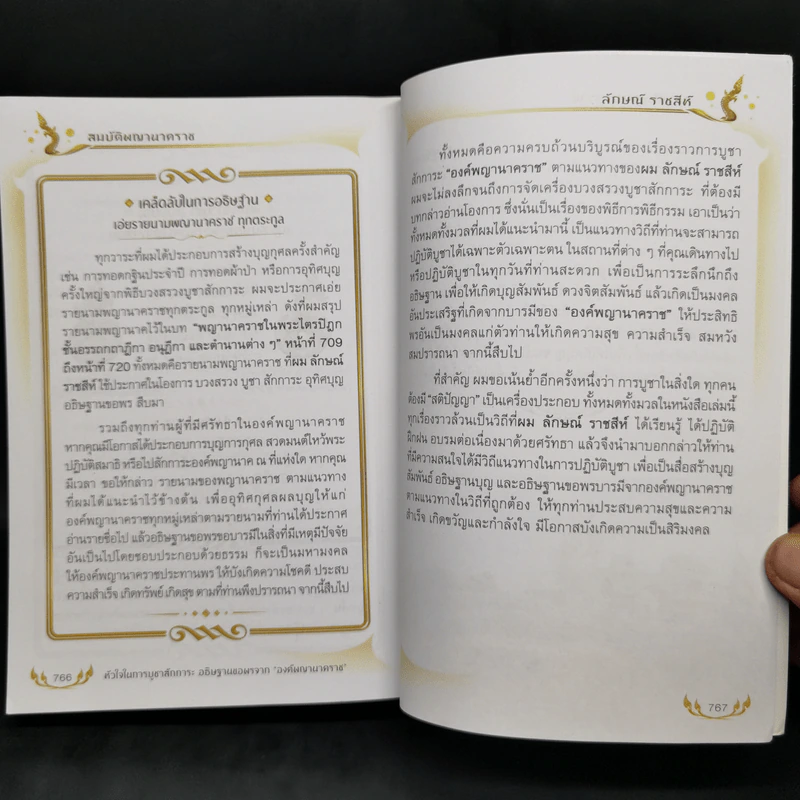 สมบัติพญานาคราช
เคล็ดลับในการอธิษฐาน
เอ่ยรายนามพญานาคราช ทุกตระกูล
ทุกวาระที่ผมได้ประกอบการสร้างบุญกุศลครั้งสำคัญ
เช่น การทอดกฐินประจำปี การทอดผ้าป่า หรือการอุทิศบุญ
ครั้งใหญ่จากพิธีบวงสรวงบูชาสักการะ ผมจะประกาศเอ่ย
รายนามพญานาคราชทุกตระกูล ทุกหมู่เหล่า ดังที่ผมสรุป
รายนามพญานาคไว้ในบท "พญานาคราชในพระไตรปิฎก
ชั้นอรรถกถาฎีกา อนุฎีกา และตำนานต่าง ๆ" หน้าที่ 709
ถึงหน้าที่ 720 ทั้งหมดคือรายนามพญานาคราช ที่ผม ลักษณ์
ราชสีห์ ใช้ประกาศในโองการ บวงสรวง บูชา สักการะ อุทิศบุญ
อธิษฐานขอพร สืบมา
รวมถึงทุกท่านผู้ที่มีศรัทธาในองค์พญานาคราช
หากคุณมีโอกาสได้ประกอบการบุญการกุศล สวดมนต์ไหว้พระ
ปฏิบัติสมาธิ หรือไปสักการะองค์พญานาค ณ ที่แห่งใด หากคุณ
มีเวลา ขอให้กล่าว รายนามของพญานาคราช ตามแนวทาง
ที่ผมได้แนะนำไว้ข้างต้น เพื่ออุทิศกุศลผลบุญให้แก่
องค์พญานาคราชทุกหมู่เหล่าตามรายนามที่ท่านได้ประกาศ
อ่านรายชื่อไป แล้วอธิษฐานขอพรขอบารมีในสิ่งที่มีเหตุมีปัจจัย
อันเป็นไปโดยชอบประกอบด้วยธรรม ก็จะเป็นมหามงคล
ให้องค์พญานาคราชประทานพร ให้บังเกิดความโชคดี ประสบ
ความสำเร็จ เกิดทรัพย์ เกิดสุข ตามที่ท่านพึงปรารถนา จากนี้สืบไป
766
หัวใจในการบูชาสักการะ อธิษฐานขอพรจาก "องค์พญานาคราช"
ลักษณ์ ราชสีห์
ทั้งหมดคือความครบถ้วนบริบูรณ์ของเรื่องราวการบูชา
สักการะ "องค์พญานาคราช" ตามแนวทางของผม ลักษณ์ ราชสีห์
ผมจะไม่ลงลึกจนถึงการจัดเครื่องบวงสรวงบูชาสักการะ ที่ต้องมี
บทกล่าวอ่านโองการ ซึ่งนั่นเป็นเรื่องของพิธีการพิธีกรรม เอาเป็นว่า
ทั้งหมดทั้งมวลที่ผมได้แนะนำมานี้ เป็นแนวทางวิถีที่ท่านจะสามารถ
ปฏิบัติบูชาได้เฉพาะตัวเฉพาะตน ในสถานที่ต่าง ๆ ที่คุณเดินทางไป
หรือปฏิบัติบูชาในทุกวันที่ท่านสะดวก เพื่อเป็นการระลึกนึกถึง
อธิษฐาน เพื่อให้เกิดบุญสัมพันธ์ ดวงจิตสัมพันธ์ แล้วเกิดเป็นมงคล
อันประเสริฐที่เกิดจากบารมีของ "องค์พญานาคราช" ให้ประสิทธิ
พรอันเป็นมงคลแก่ตัวท่านให้เกิดความสุข ความสำเร็จ สมหวัง
สมปรารถนา จากนี้สืบไป
ที่สำคัญ ผมขอเน้นย้ำอีกครั้งหนึ่งว่า การบูชาในสิ่งใด ทุกคน
ต้องมี "สติปัญญา" เป็นเครื่องประกอบ ทั้งหมดทั้งมวลในหนังสือเล่มนี้
ทุกเรื่องราวล้วนเป็นวิถีที่ผม ลักษณ์ ราชสีห์ ได้เรียนรู้ ได้ปฏิบัติ
ฝึกฝน อบรมต่อเนื่องมาด้วยศรัทธา แล้วจึงนำมาบอกกล่าวให้ท่าน
ที่มีความสนใจได้มีวิถีแนวทางในการปฏิบัติบูชา เพื่อเป็นสื่อสร้างบุญ
สัมพันธ์ อธิษฐานบุญ และอธิษฐานขอพรบารมีจากองค์พญานาคราช
ตามแนวทางในวิถีที่ถูกต้อง ให้ทุกท่านประสบความสุขและความ
สำเร็จ เกิดขวัญและกำลังใจ มีโอกาสบังเกิดความเป็นสิริมงคล
767